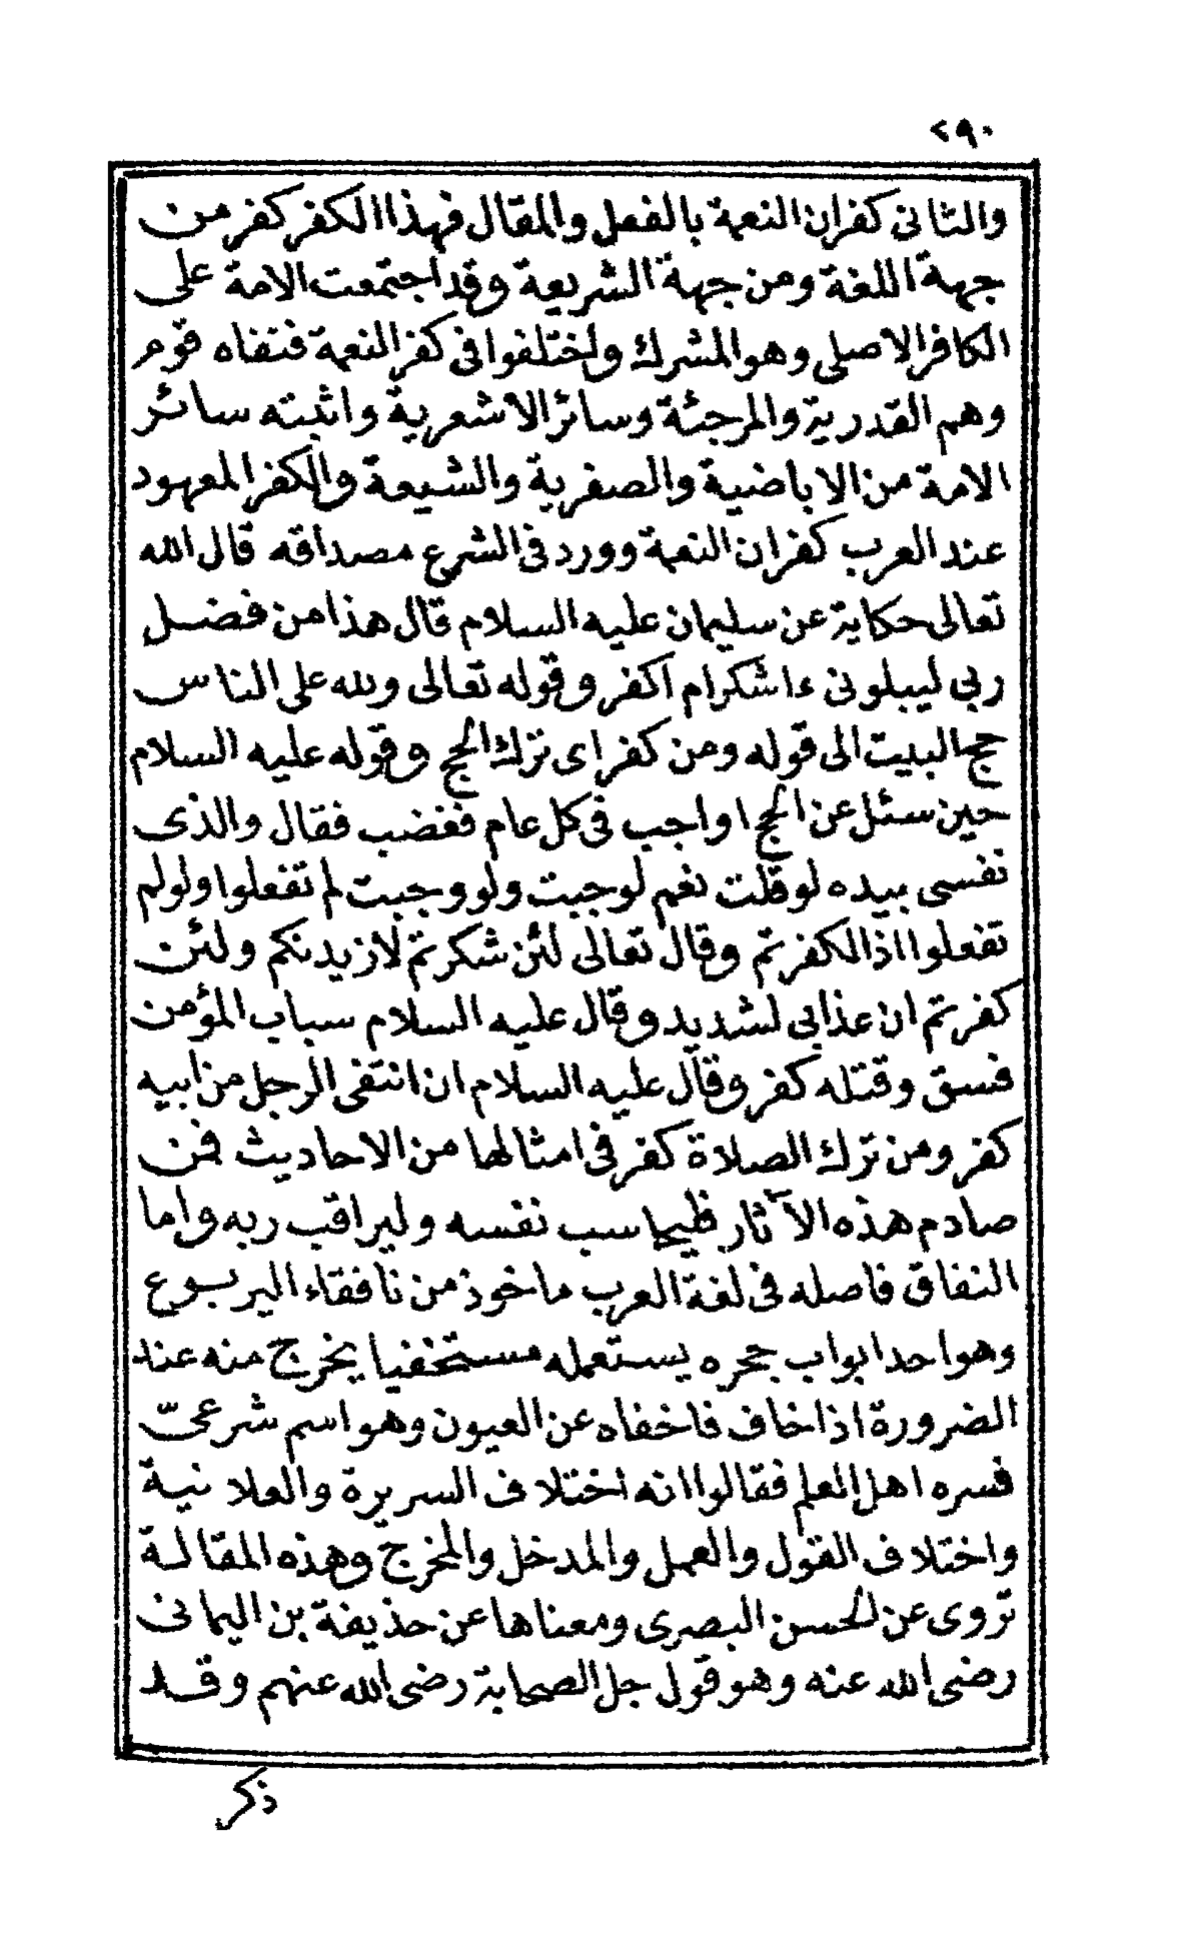 ٢٩٠
والثانى كفران النعمة بالفعل والمقال فهذا الكفر كفر من
جهة اللغة ومن جهة الشريعة وقد اجتمعت الامة على
الكافر الاصلى وهو المشرك واختلفوا فى كفر النعمة فنفاه قوم
وهم القدرية والمرجئة وسائر الاشعرية واثبته سائر
الامة من الاباضية والصفرية والشيعة والكفر المعهود
عند العرب كفران النعمة وورد فى الشرع مصداقه قال الله
تعالى حكاية عن سليمان عليه السلام قال هذا من فضل
ربى ليبلونى ءاشكر ام اكفر وقوله تعالى ولله على الناس
حج البيت الى قوله ومن كفر اى ترك الحج وقوله عليه السلام
حين سئل عن الحج اواجب فى كل عام فغضب فقال والذى
نفسى بيده لو قلت نعم لوجبت ولو وجبت لم تفعلوا ولو لم
تفعلوا اذا لكفرتم وقال تعالى لئن شكرتم لازيدنكم ولئن
كفرتم ان عذابى لشديد وقال عليه السلام سباب المؤمن
فسق وقتله كفر وقال عليه السلام ان انتفى الرجل من ابيه
كفر ومن ترك الصلاة كفر فى امثالها من الاحاديث فمن
صادم هذه الآثار فليحاسب نفسه وليراقب ربه واما
النفاق فاصله فى لغة العرب ماخوذ من نافقاء اليربوع
وهو احد ابواب جحره يستعمله مستخفيا يخرج منه عند
الضرورة اذا خاف فاخفاه عن العيون وهو اسم شرعىّ
فسره اهل العلم فقالوا انه اختلاف السريرة والعلانية
واختلاف القول والعمل والمدخل والمخرج وهذه المقالة
تروى عن الحسن البصرى ومعناها عن حذيفة بن اليمانى
رضى الله عنه وهو قول جل الصحابة رضى الله عنهم وقد
ذكر